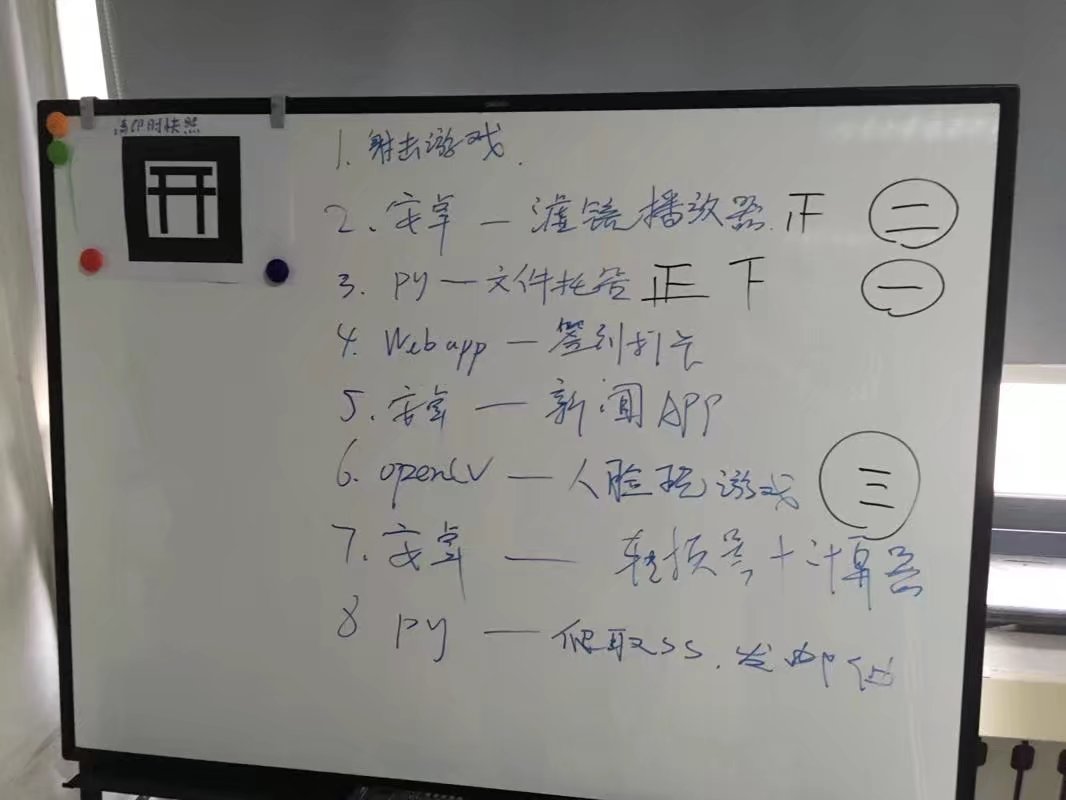 请即时快照
1. 射击游戏.
2. 安卓 — 滤镜播放器 正 二
3. py — 文件托管 正 下 一
4. Web app — 签到打卡
5. 安卓 — 新闻APP
6. openCV — 人脸玩游戏 三
7. 安卓 — 转换器 + 计算器
8 py — 爬取SS. 发邮件